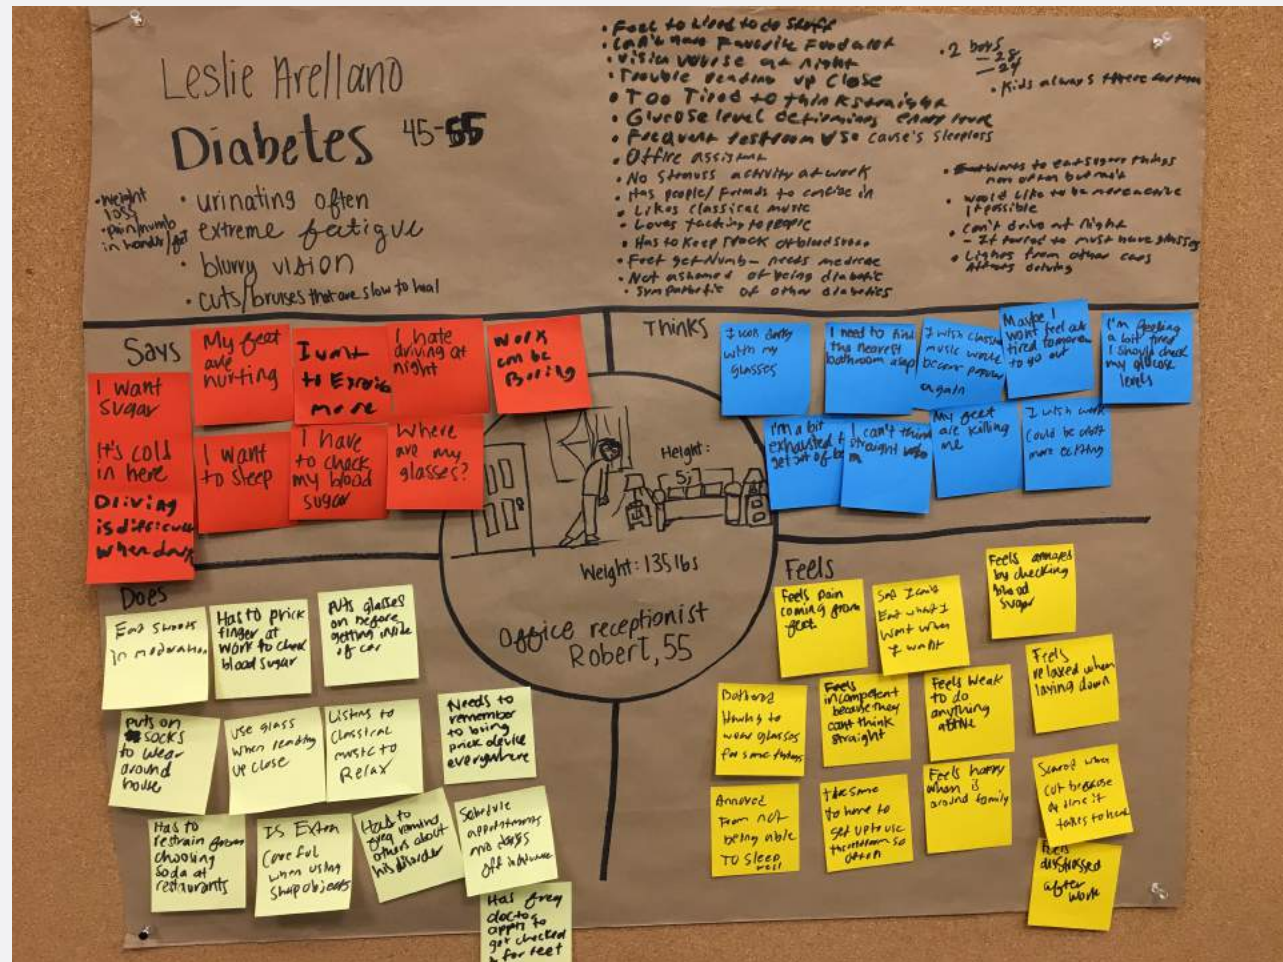 Leslie Arellano
Diabetes 45-55
• weight
loss
• pain/numb
in hands/feet
• urinating often
extreme fatigue
• blurry vision
• cuts/bruises that are slow to heal
• Feel to tired to do stuff
• Can't have Favorite Food alot
• Vision worse at night
• Trouble reading up close
• Too Tired to think straight
• Glucose level determins
• Frequent restroom use cause's sleeploss
• Office assistant
• No activity at work
• Has people/friends to confide in
• Likes classical music
• Loves talking to people
• Has to keep track of blood
• Feet get numb - needs medicine
• Not ashamed of being diabetic
• Sympathetic of other diabetics
• 2 boys
- 28
- 24
• Kids always there for him
wants to eat sugary things
more often but can't
• would like to be more active
if possible
• Can't drive at night
- If forced to must have glasses
• Lights from other cars
Affects driving
Says
My feet
are
hurting
I want
to
more
I hate
driving at
night
Work
can be
Boring
I want
sugar
It's cold
in here
Driving
is difficult
when dark
I want
to sleep
I have
to check
my blood
sugar
Where
are my
glasses?
Thinks
I look
with my
glasses
I need to find
the nearest
bathroom asap
I wish
music would
become popular
again
Maybe I
wont feel as
tired tomorrow
to go out
I'm feeling
a bit tired
I should check
my glucose
levels
I'm a bit
exhausted
get out of
I can't think
straight
My feet
are killing
me
I wish work
could be
more exciting
Height:
5;
Weight: 135 lbs
Office receptionist
Robert, 55
Does
Eat sweets
in moderation
Has to prick
finger at
work to check
blood sugar
Puts glasses
on before
getting inside
of car
Puts on
socks
to wear
around
house
use glass
when reading
up close
Listens to
Classical
music to
Relax
Needs to
remember
to bring
prick device
everywhere
Has to
restrain from
choosing
soda at
restaurants
Is Extra
Careful
when using
sharp objects
Has to
remind
others about
his disorder
Schedule
appointments
days
off in advance
Has freq
doctor
appts to
get checked
for feet
Feels
Feels pain
coming from
feet
Sad I can't
Eat what I
Want when
I want
Feels annoyed
by checking
blood
sugar
Feels
relaxed when
laying down
Bothered
Having to
wear glasses
for some things
Feels
incompetent
because they
cant think
straight
Feels weak
to do
anything
active
Annoyed
From not
being able
To sleep
well
Tiresome
to have to
get up to use
the restroom so
often
Feels happy
when is
around family
Scared when
cut because
of time it
takes to heal
Feels
distressed
after
work